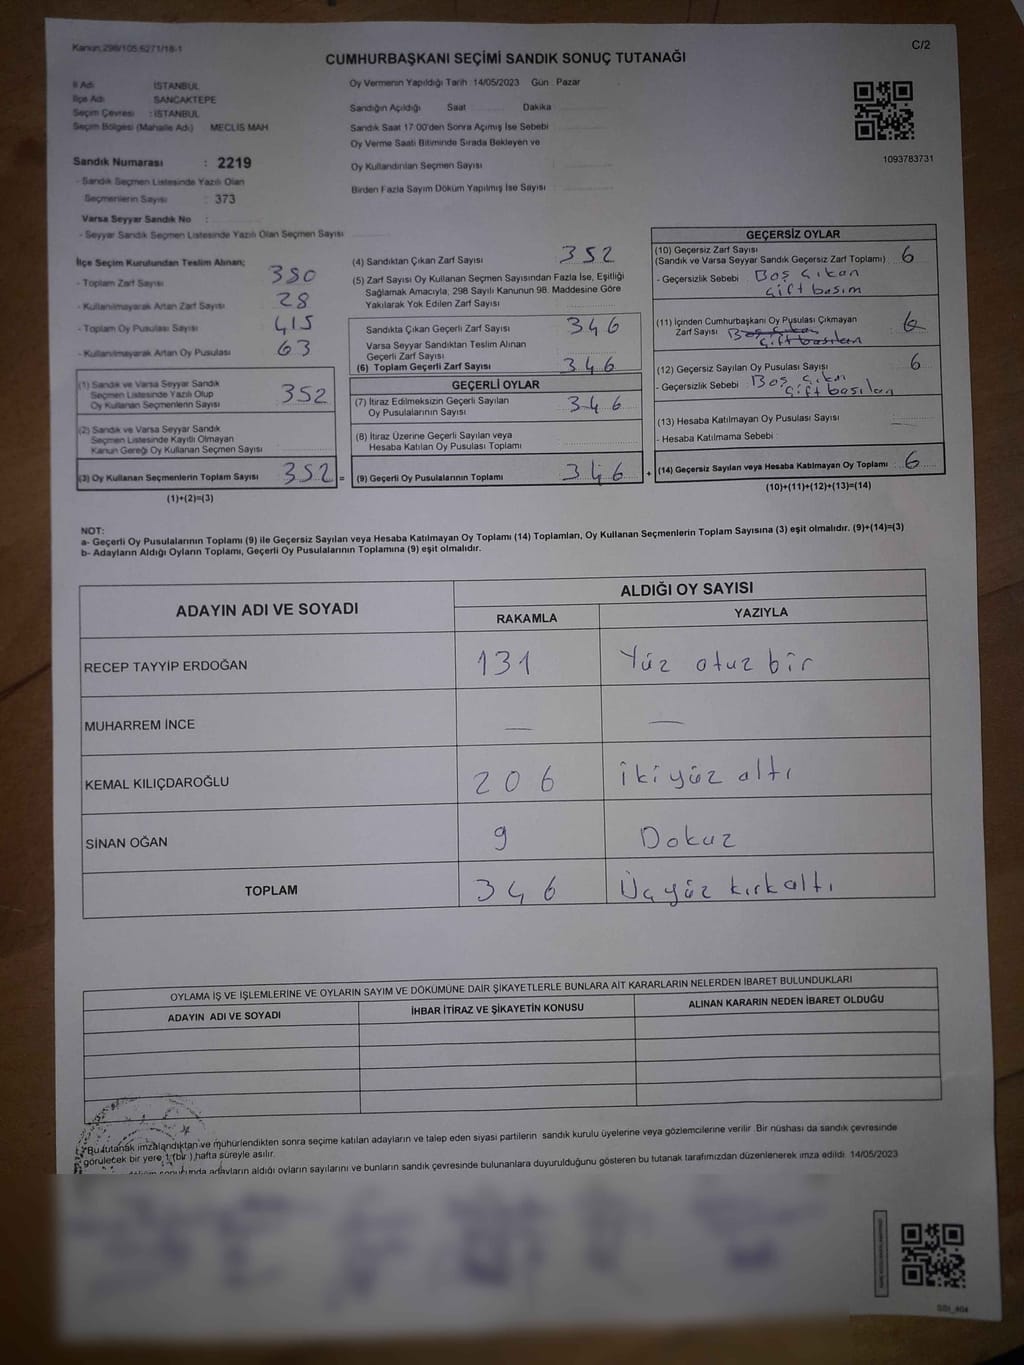 Kanun:298/105,6271/18-1
C/2
CUMHURBAŞKANI SEÇİMİ SANDIK SONUÇ TUTANAĞI
İl Adı : İSTANBUL
İlçe Adı : SANCAKTEPE
Seçim Çevresi : İSTANBUL
Seçim Bölgesi (Mahalle Adı) MECLİS MAH
Sandık Numarası : 2219
- Sandık Seçmen Listesinde Yazılı Olan
Seçmenlerin Sayısı : 373
Varsa Seyyar Sandık No :
- Seyyar Sandık Seçmen Listesinde Yazılı Olan Seçmen Sayısı
Oy Vermenin Yapıldığı Tarih :14/05/2023 Gün : Pazar
Sandığın Açıldığı Saat Dakika
Sandık Saat 17:00'den Sonra Açımış İse Sebebi
Oy Verme Saati Bitiminde Sırada Bekleyen ve
Oy Kullandırılan Seçmen Sayısı
Birden Fazla Sayım Döküm Yapılmış İse Sayısı
1093783731
İlçe Seçim Kurulundan Teslim Alınan;
- Toplam Zarf Sayısı 380
- Kullanılmayarak Artan Zarf Sayısı 28
- Toplam Oy Pusulası Sayısı 415
- Kullanılmayarak Artan Oy Pusulası 63
(1) Sandık ve Varsa Seyyar Sandık
Seçmen Listesinde Yazılı Olup
Oy Kullanan Seçmenlerin Sayısı 352
(2) Sandık ve Varsa Seyyar Sandık
Seçmen Listesinde Kayıtlı Olmayan
Kanun Gereği Oy Kullanan Seçmen Sayısı
(3) Oy Kullanan Seçmenlerin Toplam Sayısı 352 =
(1)+(2)=(3)
(4) Sandıktan Çıkan Zarf Sayısı 352
(5) Zarf Sayısı Oy Kullanan Seçmen Sayısından Fazla İse, Eşitliği
Sağlamak Amacıyla, 298 Sayılı Kanunun 98. Maddesine Göre
Yakılarak Yok Edilen Zarf Sayısı
Sandıkta Çıkan Geçerli Zarf Sayısı 346
Varsa Seyyar Sandıktan Teslim Alınan
Geçerli Zarf Sayısı
(6) Toplam Geçerli Zarf Sayısı 346
GEÇERLİ OYLAR
(7) İtiraz Edilmeksizin Geçerli Sayılan
Oy Pusulalarının Sayısı 346
(8) İtiraz Üzerine Geçerli Sayılan veya
Hesaba Katılan Oy Pusulası Toplamı
(9) Geçerli Oy Pusulalarının Toplamı 346 +
GEÇERSİZ OYLAR
(10) Geçersiz Zarf Sayısı
(Sandık ve Varsa Seyyar Sandık Geçersiz Zarf Toplamı) 6
- Geçersizlik Sebebi Boş Çıkan
Çift basım
(11) İçinden Cumhurbaşkanı Oy Pusulası Çıkmayan
Zarf Sayısı Çift basılan
(12) Geçersiz Sayılan Oy Pusulası Sayısı 6
- Geçersizlik Sebebi Boş çıkan
Çift basılan
(13) Hesaba Katılmayan Oy Pusulası Sayısı
- Hesaba Katılmama Sebebi
(14) Geçersiz Sayılan veya Hesaba Katılmayan Oy Toplamı 6
(10)+(11)+(12)+(13)=(14)
NOT:
a- Geçerli Oy Pusulalarının Toplamı (9) ile Geçersiz Sayılan veya Hesaba Katılmayan Oy Toplamı (14) Toplamları, Oy Kullanan Seçmenlerin Toplam Sayısına (3) eşit olmalıdır. (9)+(14)=(3)
b- Adayların Aldığı Oyların Toplamı, Geçerli Oy Pusulalarının Toplamına (9) eşit olmalıdır.
ADAYIN ADI VE SOYADI
ALDIĞI OY SAYISI
RAKAMLA YAZIYLA
RECEP TAYYİP ERDOĞAN 131 Yüz otuz bir
MUHARREM İNCE — —
KEMAL KILIÇDAROĞLU 206 İkiyüz altı
SİNAN OĞAN 9 Dokuz
TOPLAM 346 Üçyüz kırkaltı
OYLAMA İŞ VE İŞLEMLERİNE VE OYLARIN SAYIM VE DÖKÜMÜNE DAİR ŞİKAYETLERLE BUNLARA AİT KARARLARIN NELERDEN İBARET BULUNDUKLARI
ADAYIN ADI VE SOYADI İHBAR İTİRAZ VE ŞİKAYETİN KONUSU ALINAN KARARIN NEDEN İBARET OLDUĞU
Bu tutanak imzalandıktan ve mühürlendikten sonra seçime katılan adayların ve talep eden siyasi partilerin sandık kurulu üyelerine veya gözlemcilerine verilir. Bir nüshası da sandık çevresinde
görülecek bir yere 1 (bir) hafta süreyle asılır.
adayların aldığı oyların sayılarını ve bunların sandık çevresinde bulunanlara duyurulduğunu gösteren bu tutanak tarafımızdan düzenlenerek imza edildi. 14/05/2023